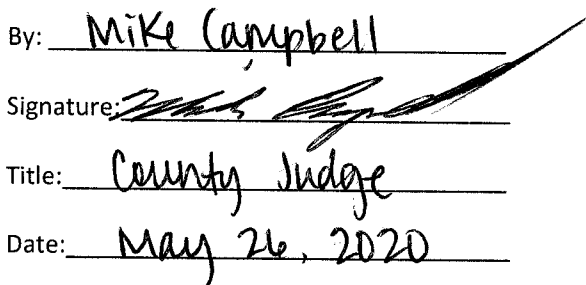 By: Mike Campbell
Signature:
Title: County Judge
Date: May 26, 2020